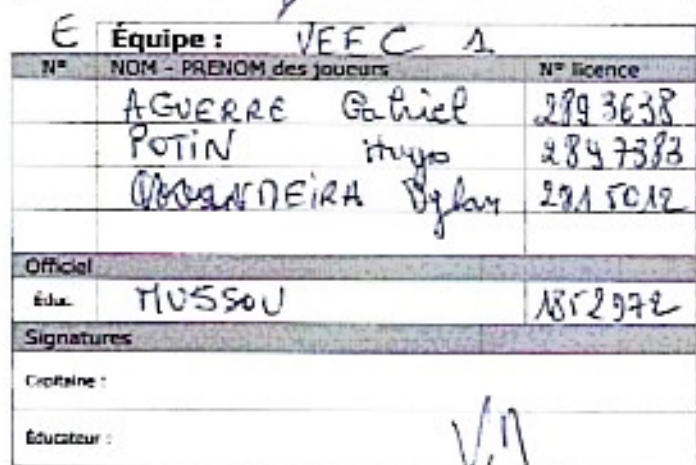 E Équipe : VEFC 1
N° NOM - PRENOM des joueurs N° licence
AGUERRE Gabriel 2893638
POTIN Hugo 2847383
Dylan
Officiel
Éduc. MUSSOU 1852972
Signatures
Capitaine :
Éducateur :